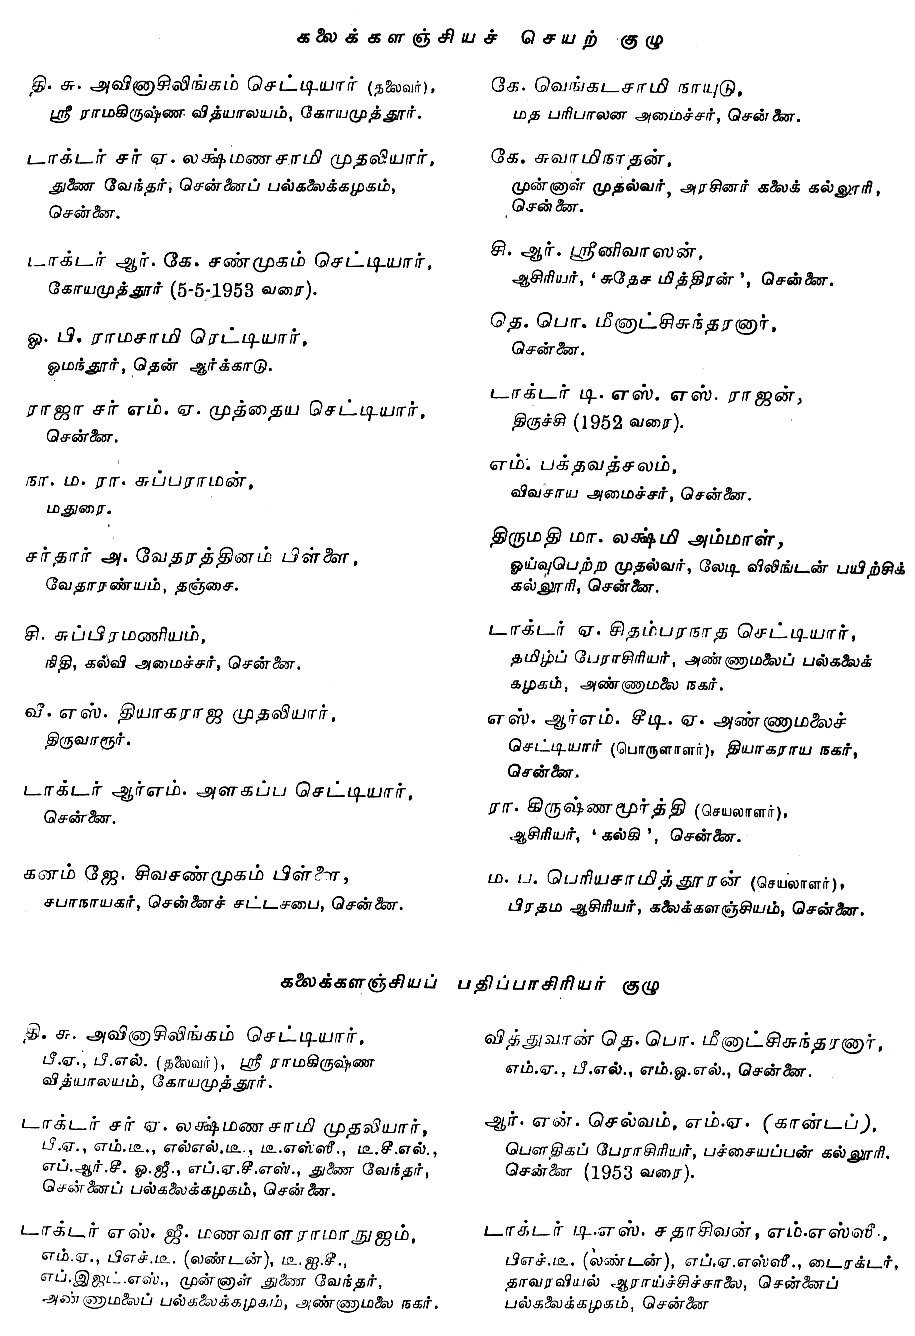 கலைக்களஞ்சியச் செயற் குழு
தி. சு. அவினாசிலிங்கம் செட்டியார் (தலைவர்),
ஸ்ரீ ராமகிருஷ்ண வித்யாலயம், கோயமுத்தூர்.
டாக்டர் சர் ஏ. லக்ஷ்மணசாமி முதலியார்,
துணை வேந்தர், சென்னைப் பல்கலைக்கழகம்,
சென்னை.
டாக்டர் ஆர். கே. சண்முகம் செட்டியார்,
கோயமுத்தூர் (5-5-1953 வரை).
ஓ. பி. ராமசாமி ரெட்டியார்,
ஓமந்தூர், தென் ஆர்க்காடு.
ராஜா சர் எம். ஏ. முத்தைய செட்டியார்,
சென்னை.
நா. ம. ரா. சுப்பராமன்,
மதுரை.
சர்தார் அ. வேதரத்தினம் பிள்ளை,
வேதாரண்யம், தஞ்சை.
சி. சுப்பிரமணியம்,
நிதி, கல்வி அமைச்சர், சென்னை.
வீ. எஸ். தியாகராஜ முதலியார்,
திருவாரூர்.
டாக்டர் ஆர்எம். அளகப்ப செட்டியார்,
சென்னை.
கனம் ஜே. சிவசண்முகம் பிள்ளை,
சபாநாயகர், சென்னைச் சட்டசபை, சென்னை.
கே. வெங்கடசாமி நாயுடு,
மத பரிபாலன அமைச்சர், சென்னை.
கே. சுவாமிநாதன்,
முன்னாள் முதல்வர், அரசினர் கலைக் கல்லூரி,
சென்னை.
சி. ஆர். ஸ்ரீனிவாஸன்,
ஆசிரியர், ‘ சுதேச மித்திரன் ’, சென்னை.
தெ. பொ. மீனாட்சிசுந்தரனார்,
சென்னை.
டாக்டர் டி. எஸ். எஸ். ராஜன்,
திருச்சி (1952 வரை).
எம். பக்தவத்சலம்,
விவசாய அமைச்சர், சென்னை.
திருமதி மா. லக்ஷ்மி அம்மாள்,
ஓய்வுபெற்ற முதல்வர், லேடி விலிங்டன் பயிற்சிக்
கல்லூரி, சென்னை.
டாக்டர் ஏ. சிதம்பரநாத செட்டியார்,
தமிழ்ப் பேராசிரியர், அண்ணாமலைப் பல்கலைக்
கழகம், அண்ணாமலை நகர்.
எஸ். ஆர்எம். சீடி. ஏ. அண்ணாமலைச்
செட்டியார் (பொருளாளர்), தியாகராய நகர்,
சென்னை.
ரா. கிருஷ்ணமூர்த்தி (செயலாளர்),
ஆசிரியர், ‘ கல்கி ’, சென்னை.
ம. ப. பெரியசாமித்தூரன் (செயலாளர்),
பிரதம ஆசிரியர், கலைக்களஞ்சியம், சென்னை.
கலைக்களஞ்சியப் பதிப்பாசிரியர் குழு
தி. சு. அவினாசிலிங்கம் செட்டியார்,
பீ.ஏ., பீ.எல். (தலைவர்), ஸ்ரீ ராமகிருஷ்ண
வித்யாலயம், கோயமுத்தூர்.
டாக்டர் சர் ஏ. லக்ஷ்மணசாமி முதலியார்,
பீ.ஏ., எம்.டீ., எல்எல்.டீ., டீ.எஸ்ஸீ., டீ.சீ.எல்.,
எப்.ஆர்.சீ. ஓ.ஜீ., எப்.ஏ.சீ.எஸ்., துணை வேந்தர்,
சென்னைப் பல்கலைக்கழகம், சென்னை.
டாக்டர் எஸ். ஜீ. மணவாளராமாநுஜம்,
எம்.ஏ., பிஎச்.டீ. (லண்டன்), டீ.ஐ.சீ.,
எப்.இஜட்.எஸ்., முன்னாள் துணை வேந்தர்,
அண்ணாமலைப் பல்கலைக்கழகம், அண்ணாமலை நகர்.
வித்துவான் தெ. பொ. மீனாட்சிசுந்தரனார்,
எம்.ஏ., பீ.எல்., எம்.ஓ.எல்., சென்னை.
ஆர். என். செல்வம், எம்.ஏ. (கான்டப்),
பௌதிகப் பேராசிரியர், பச்சையப்பன் கல்லூரி.
சென்னை (1953 வரை).
டாக்டர் டி.எஸ். சதாசிவன், எம்.எஸ்ஸீ.,
பிஎச்.டீ. (லண்டன்), எப்.ஏ.எஸ்ஸீ., டைரக்டர்,
தாவரவியல் ஆராய்ச்சிச்சாலை, சென்னைப்
பல்கலைக்கழகம், சென்னை